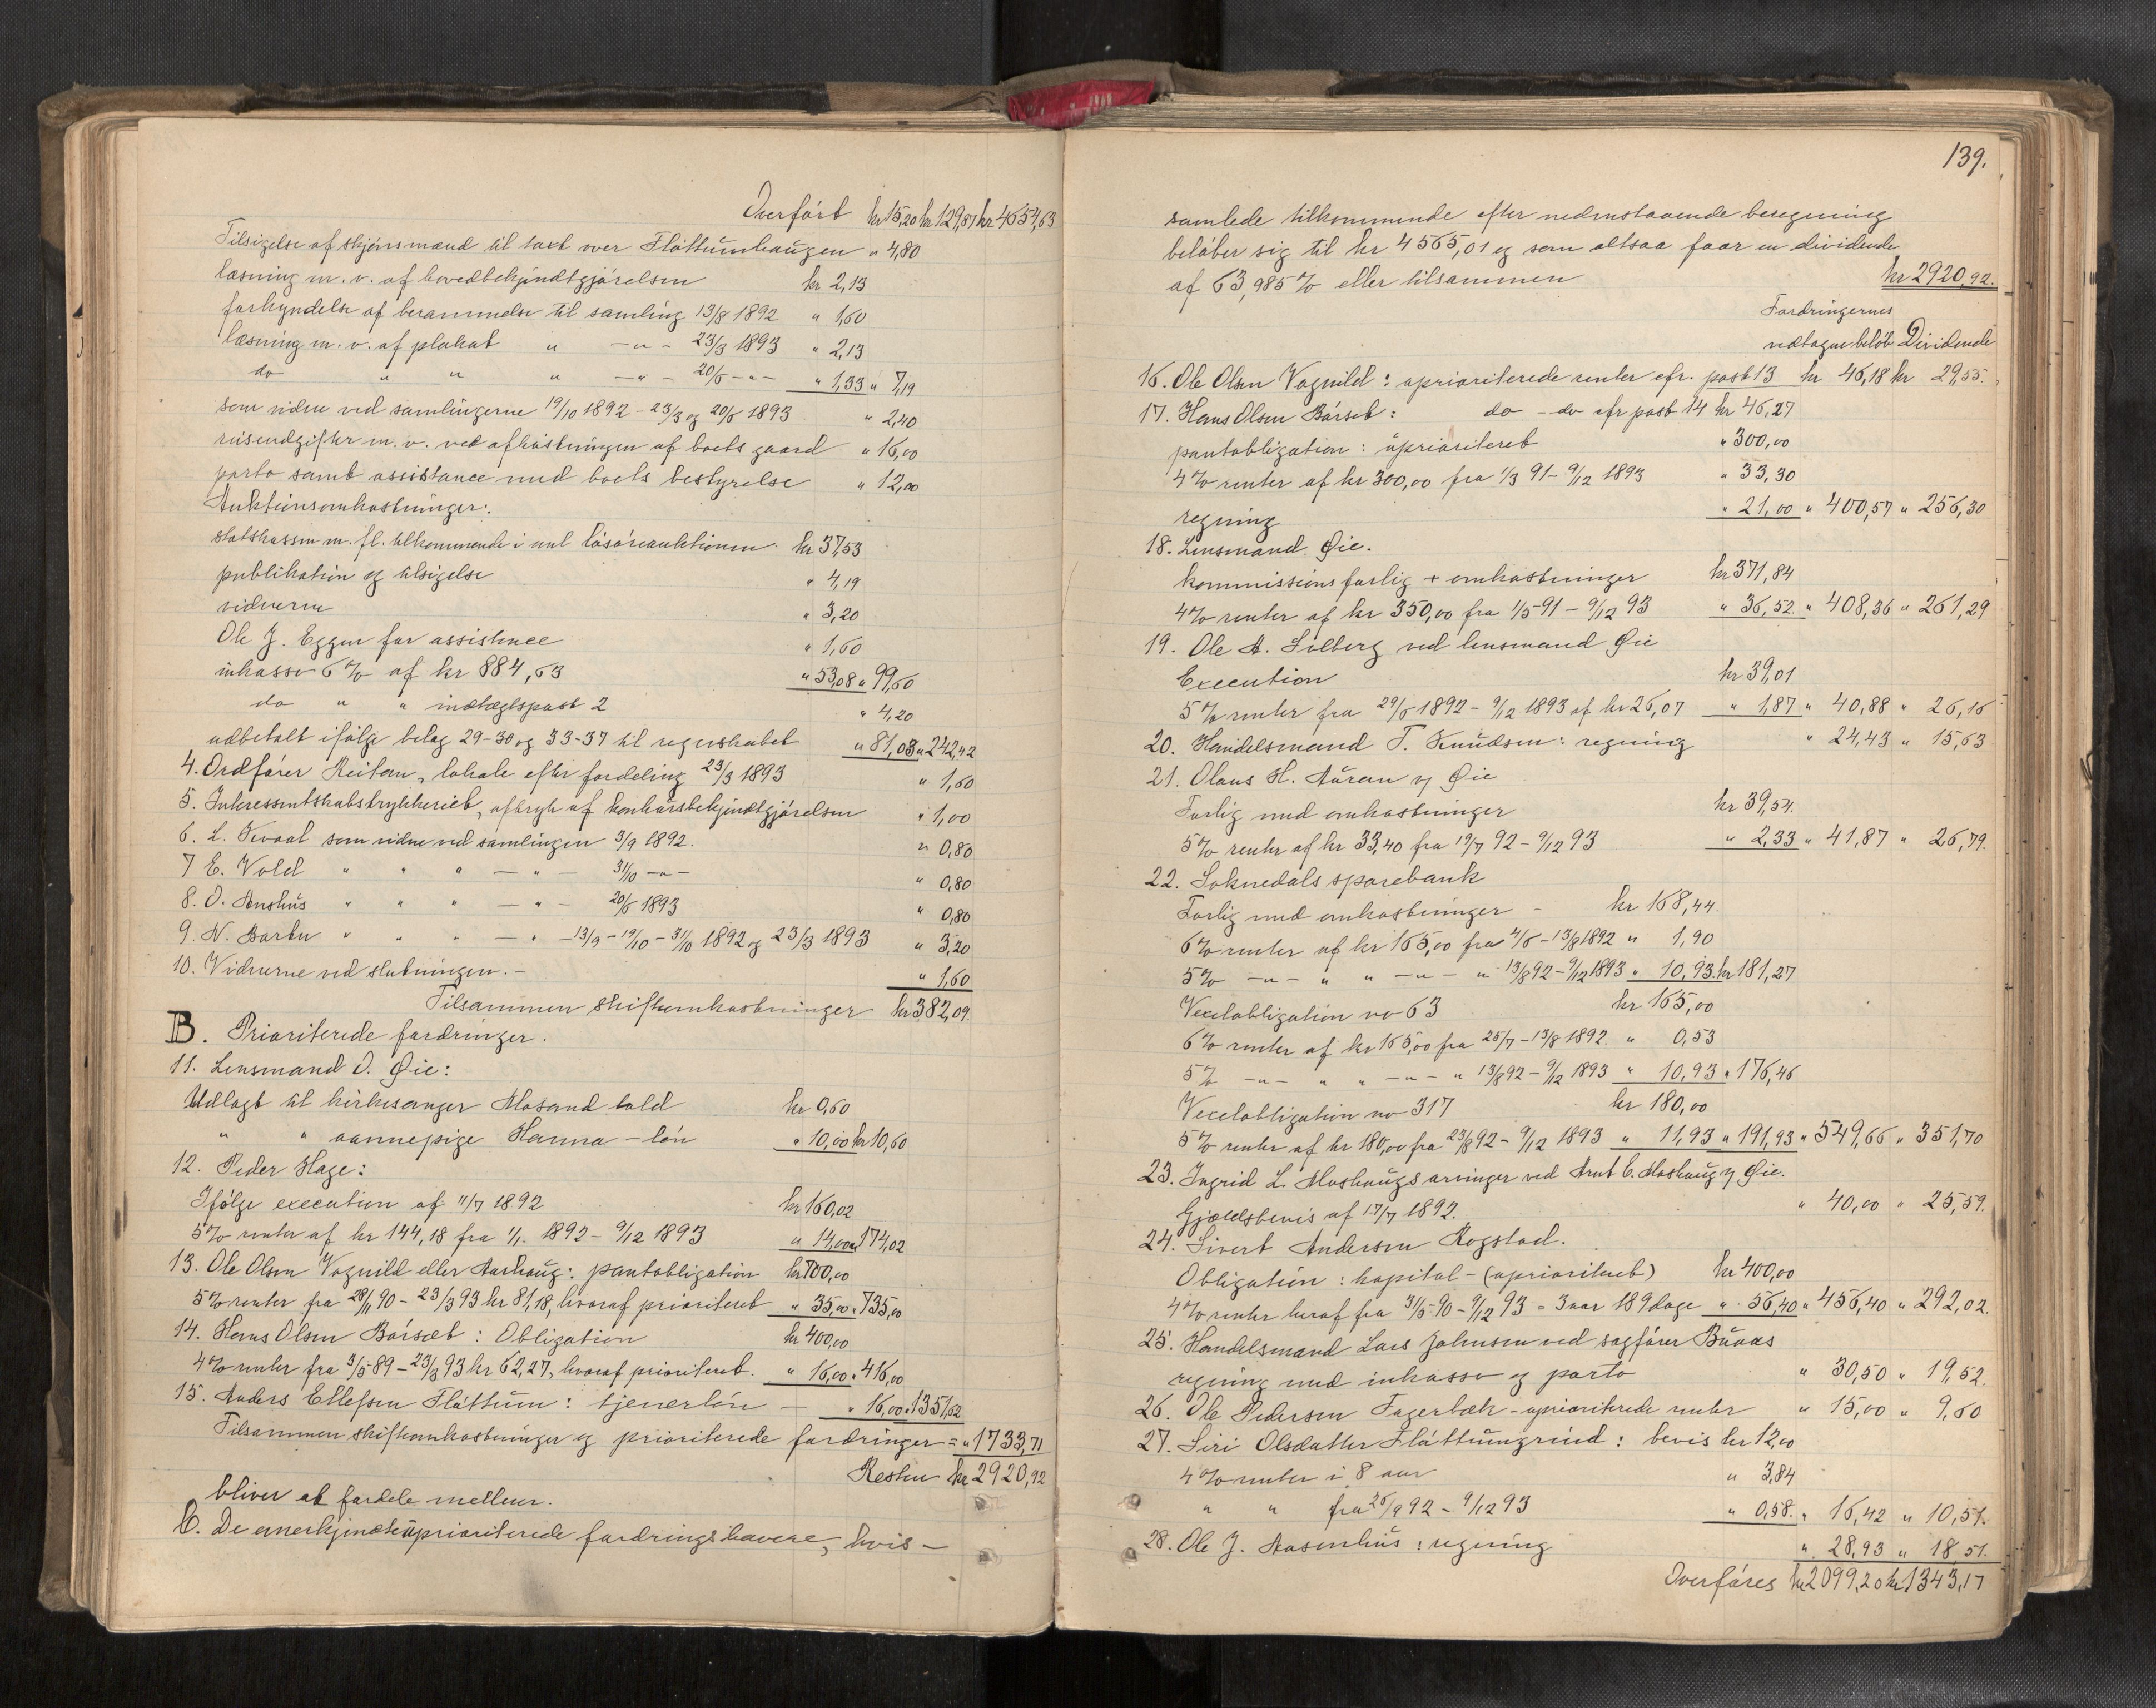 Overført kr 15,20 kr 129,87 kr 4654,63
Tilsigelse af skjønsmænd til taxt over Fløttumhaugen " 4,80
læsning m. v. af hovedbekjendtgjørelsen kr 2,13
forkyndelse af berammelse til samling 13/8 1892 " 1,60
læsning m. v. af plakat " — " — 23/3 1893 " 2,13
do " " " — " — 20/6 — " — " 1,33 " 7,19
som vidne ved samlingerne 19/10 1892 - 23/3 og 20/6 1893 " 2,40
reiseudgifter m. v. ved afhøstningen af boets gaard " 16,00
porto samt assistance med boets bestyrelse " 12,00
Auktionsomkostninger:
statskassen m. fl. tilkommende i anl løsøreauktionen kr 37,53
publikation og tilsigelse " 4,19
vidnerne " 3,20
Ole J. Eggen for assistence " 1,60
inkasso 6% af kr 884,63 " 53,08 " 99,60
do " " indtægtspost 2 " 4,20
udbetalt ifølge belag 29-30 og 33-37 til regnskabet " 81,03 " 242,42
4. Ordfører Reitan, lokale efter fordeling 23/3 1893 " 1,60
5. Interessentskabstrykkeriet, aftryk af konkursbekjendtgjørelsen " 1,00
6. L. Kvaal som vidne ved samlingen 3/9 1892. " 0,80
7 E. Vold " " " — " — 31/10 — " — " 0,80
8. O. Aashus " " " — " — 20/6 1893 " 0,80
9. N. Bortn " " " — " 13/9 - 19/10 - 31/10 1892 og 23/3 1893 " 3,20
10. Vidnerne ved slutningen. — " 1,60
Tilsammen skifteomkostninger kr 382,09.
B. Prioriterede fordringer.
11. Lensmand O. Øie:
Udlagt til kirkesanger Mosand told kr 0,60
" " aannepige Hanna — løn " 10,00 kr 10,60
12. Peder Hage:
Ifølge execution af 11/7 1892 kr 160,02
5% renter af kr 144,18 fra 1/1. 1892 - 9/12 1893 " 14,00 " 174,02
13. Ole Olsen Vognild eller Aarhaug: pantobligation kr 700,00
5% renter fra 28/11 90 - 23/3 93 kr 81,18, hvoraf prioriteret " 35,00 " 735,00
14. Hans Olsen Børsæt: Obligation kr 400,00
4% renter fra 3/5 89 - 23/3 93 kr 62,27, hvoraf prioriteret. " 16,00 " 416,00
15. Anders Ellefsen Fløttum: tjenerløn — " 16,00 " 1351,62
Tilsammen skifteomkostninger og prioriterede fordringer = " 1733,71
Resten kr 2920,92
bliver at fordele mellem.
C. De anerkjendte uprioriterede fordringshavere, hvis —
139.
samlede tilkommende efter nedenstaaende beregning
beløber sig til kr 4565,01 og som altsaa faar en dividende
af 63,985% eller tilsammen kr 2920,92.
Fordringernes
vedtagne beløb Dividende
16. Ole Olsen Vognild: uprioriterede renter cfr. post 13 kr 46,18 kr 29,55.
17. Hans Olsen Børset: do — do cfr post 14 kr 46,27
pantobligation: uprioriteret " 300,00
4% renter af kr 300,00 fra 1/3 91 - 9/12 1893 " 33,30
regning " 21,00 " 400,57 " 256,30
18. Lensmand Øie.
kommissionsforlig + omkostninger kr 371,84
4% renter af kr 350,00 fra 1/5 91 - 9/12 93 " 36,52 " 408,36 " 261,29
19. Ole A. Solberg ved lensmand Øie
Execution kr 39,01
5% renter fra 29/6 1892 - 9/12 1893 af kr 26,07 " 1,87 " 40,88 " 26,16
20. Handelsmand T. Knudsen: regning " 24,43 " 15,63
21. Olaus H. Auran v/ Øie
Forlig med omkostninger kr 39,54.
5% renter af kr 33,40 fra 19/7 92 - 9/12 93 " 2,33 " 41,87 " 26,79.
22. Soknedals sparebank
Forlig med omkostninger — kr 168,44.
6% renter af kr 165,00 fra 4/6 - 13/8 1892 " 1,90
5% — " — " " — " — " 13/8 92 - 9/12 1893 " 10,93. kr 181,27
Vexelobligation no 63 kr 165,00
6% renter af kr 165,00 fra 25/7 - 13/8 1892. " 0,53
5% — " — " " — " — " 13/8 92 - 9/12 1893 " 10,93 " 176,46
Vexelobligation no 317 kr 180,00
5% renter af kr 180,00 fra 23/8 92 - 9/12 1893 " 11,93 " 191,93 " 549,66 " 351,70
23. Ingrid L. Moshaugs arvinger ved Arnt E. Moshaug v/ Øie.
Gjældsbevis af 17/7 1892. " 40,00 " 25,59.
24. Sivert Andersen Rogstad.
Obligation: kapital — (uprioriteret) kr 400,00
4% renter heraf fra 31/5 90 - 9/12 93 = 3 aar 189 dage " 56,40 " 456,40 " 292,02.
25. Handelsmand Lars Johnsen ved sagfører Buaas
regning med inkasso og porto " 30,50 " 19,52.
26. Ole Pedersen Fagerbæk — uprioriterede renter " 15,00 " 9,60
27. Siri Olsdatter Fløttumgrind: bevis kr 12,00
4% renter i 8 aar " 3,84
" " fra 26/9 92 - 9/12 93 " 0,58. " 16,42 " 10,51.
28. Ole J. Aasenhus: regning " 28,93 " 18,51.
Overføres kr 2099,20 kr 1343,17